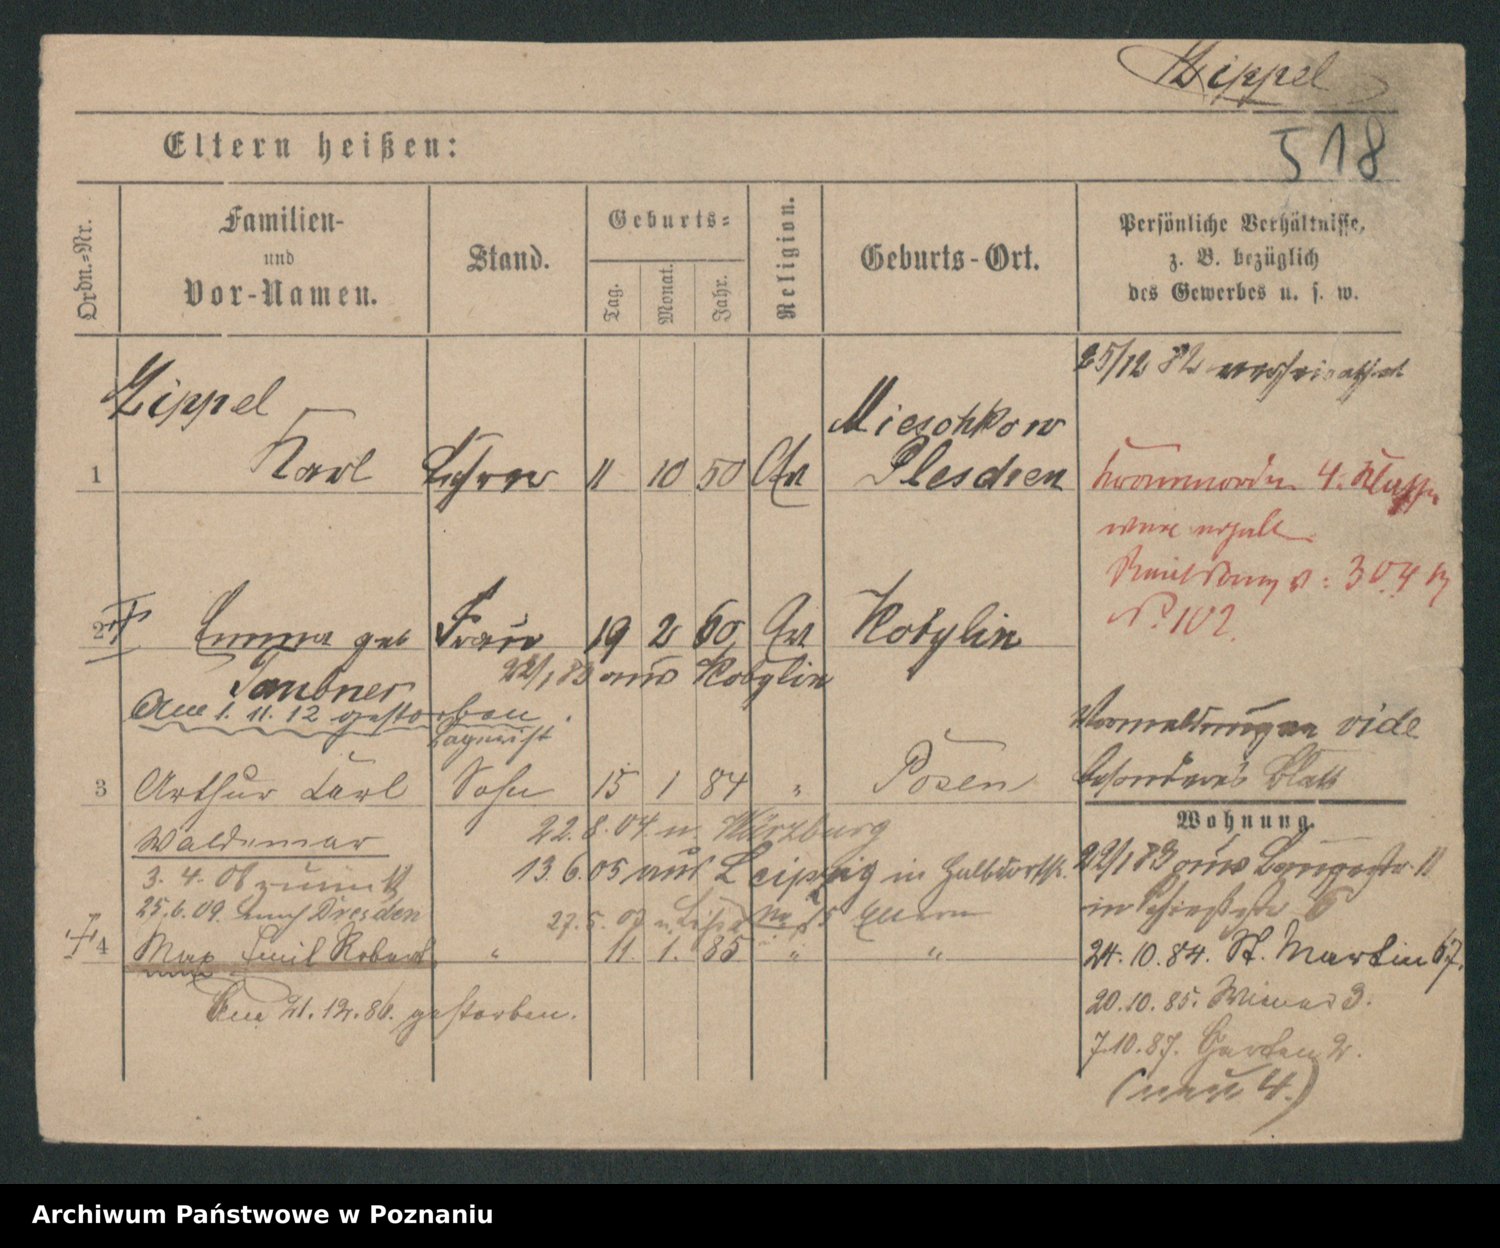 Zippel
518
Eltern heißen:
Ordn.=Nr.
Familien-
und
Vor-Namen.
Stand.
Geburts=
Tag.
Monat.
Jahr.
Religion.
Geburts-Ort.
Persönliche Verhältnisse,
z. B. bezüglich
des Gewerbes u. s. w.
25/12 82 verheirathet
Zippel
1 Karl Lehrer 11 10 50 Ev Mieschkow
Pleschen
4. Klasse
302
№ 102.
2 Emma geb Frau 19 2 60 Ev Kobylin
Taubner 22/1 83 aus Kobylin
Am 1. 11. 12 gestorben.
Lagerist
3 Arthur Karl Sohn 15 1 84 " Posen
Waldemar
22.8.04 n. Würzburg
3. 4. 06 zurück
13.6.05 aus Leipzig in
25.6.09. nach Dresden
27.5.07 Eltern
4 Max Emil Robert " 11. 1. 85 " "
Max
Am 21.12.86. gestorben.
Vormeldungen vide
besonderes Blatt
Wohnung.
22/1 83 aus Langestr. 11
in 6
24.10.84. St. Martin 67.
20.10.85. Wiener 3.
7.10.87. Garten 2.
(neu 4.)
Archiwum Państwowe w Poznaniu